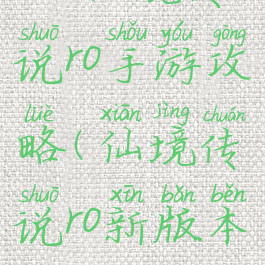 shuō shǒu yóu gōng
说ro手游攻
lüè xiān jìng chuán
略(仙境传
shuō xīn bǎn běn
说ro新版本